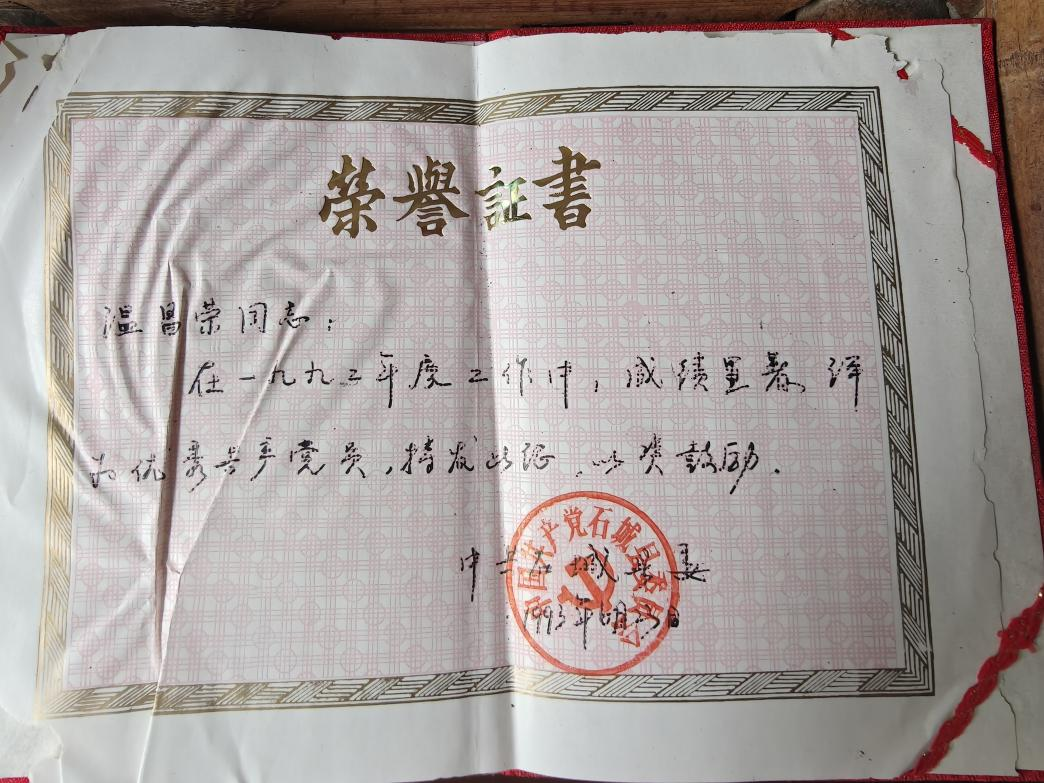 榮譽証書
温昌荣同志：
在一九九二年度工作中，成绩显著，评
为优秀共产党员，特发此证，以资鼓励．
中共石城县委
1993年 月 日
中国共产党石城县委员会